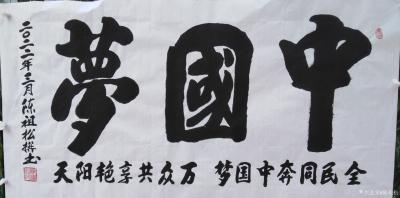 中國夢
全民同奔中国梦 万众共享艳阳天
二〇二二年三月陈祖松撰书